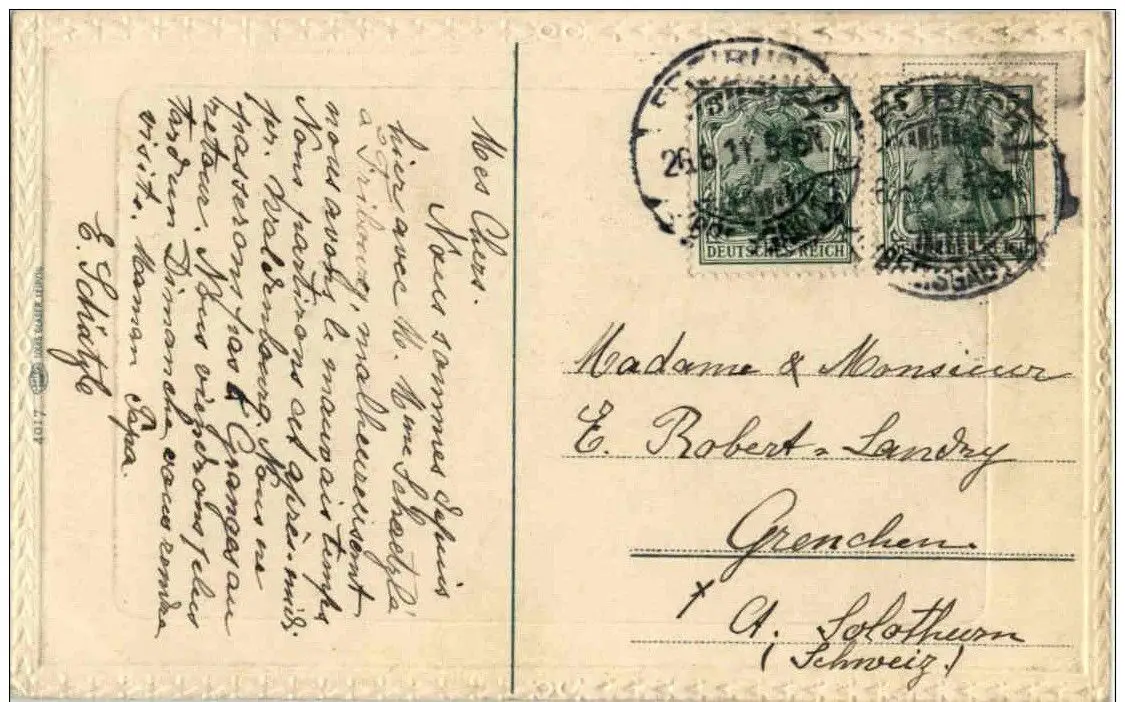 Mes Chers.
Nous sommes depuis
hier avec M. Mme Schaetzlé
a Fribourg, malheureusement
nous avons le mauvais temps
Nous partirons cet après-midi
pr. Waldenbourg. Nous ne
passerons pas à Granges au
retour. Nous viendrons plus
tard un Dimanche vous rendre
visite. Maman Papa.
E. Schätzle
4017
26.6.11. 5-6N
DEUTSCHES REICH
Madame & Monsieur
E. Robert-Landry
Grenchen.
Ct. Solothurn
(Schweiz.)